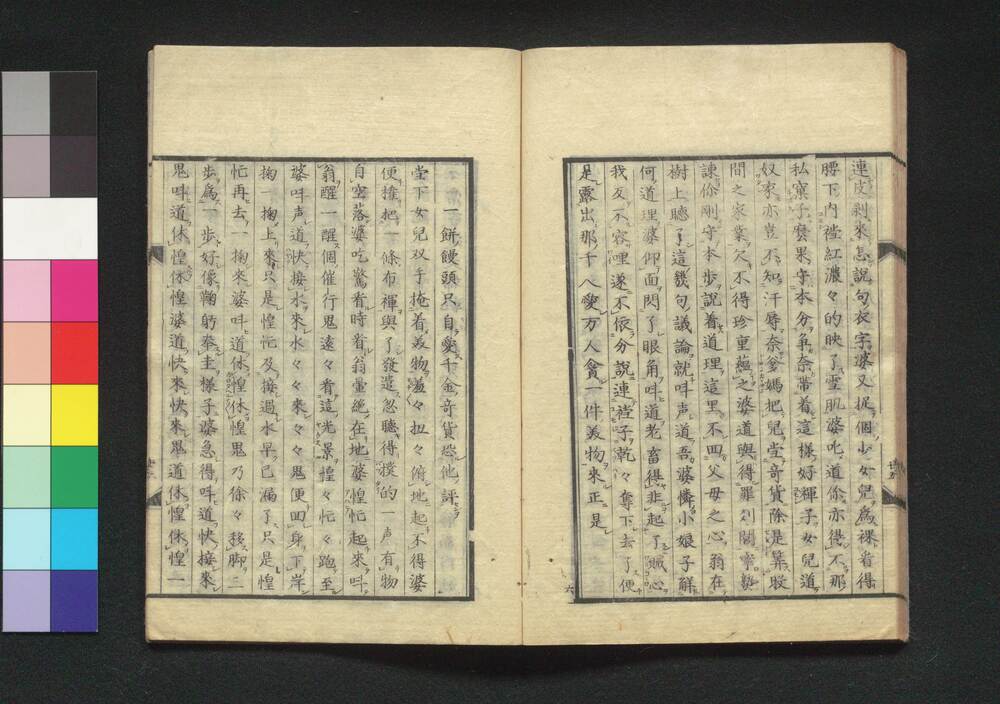 連皮剥來怎說句衣字婆又捉個少女兒為裸看得
腰下内襠紅濃々的映了雪肌婆叱道你亦得不那
私窠子麼果守本分爭奈帶着這樣好褌子女兒道
奴家亦豈不知汗辱奈爹媽把兒當奇貨除是築股
間之家業欠不得珍重蘊之婆道與得罪到閻寧
諫你剛守本步說着道理這里不四父母之心翁在
樹上聽了這幾句議論就呌声道吾婆憐小娘子解
何道理婆仰面閃了眼角呌道老畜得非起了贓心
我反不容哩遂不依分說連襠子乾々奪下去了便
是露出那千人愛万人貪一件美物來正是
一餅饅頭只自愛千金奇貨恐他評
當下女兒双手掩着美物羞々扭々俯地起不得婆
便捲把一條布褌與了發遣忽聽得撲的一声有物
自空落婆吃驚看時看翁暈絶在地婆惶忙起來呌
翁醒一醒個催行鬼遠々看這光景惶々忙々跑至
婆呌声道快接水來水々々來々々鬼便回身下岸
掬一掬上來只是惶忙及接過水早已漏了只是惶
忙再去一掬來婆呌道休惶休惶鬼乃徐々移脚二
步為一步好像鞠躬奉圭樣子婆急得呌道快接來
鬼呌道休惶休惶婆道快來快來鬼道休惶休惶一